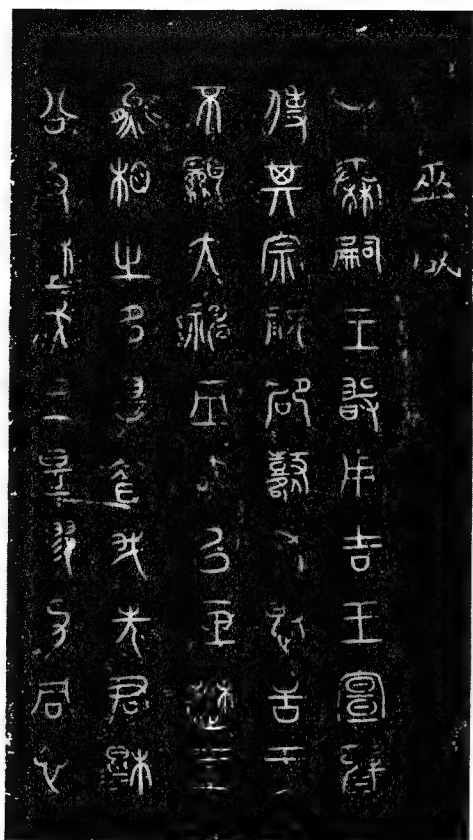 巫咸
又秦嗣王敢用吉玉宣璧
使其宗祝邵鼛布憝告于
不顯大神巫咸以底楚王
熊相之多辠昔我先君穆
公及楚成王是繆力同心